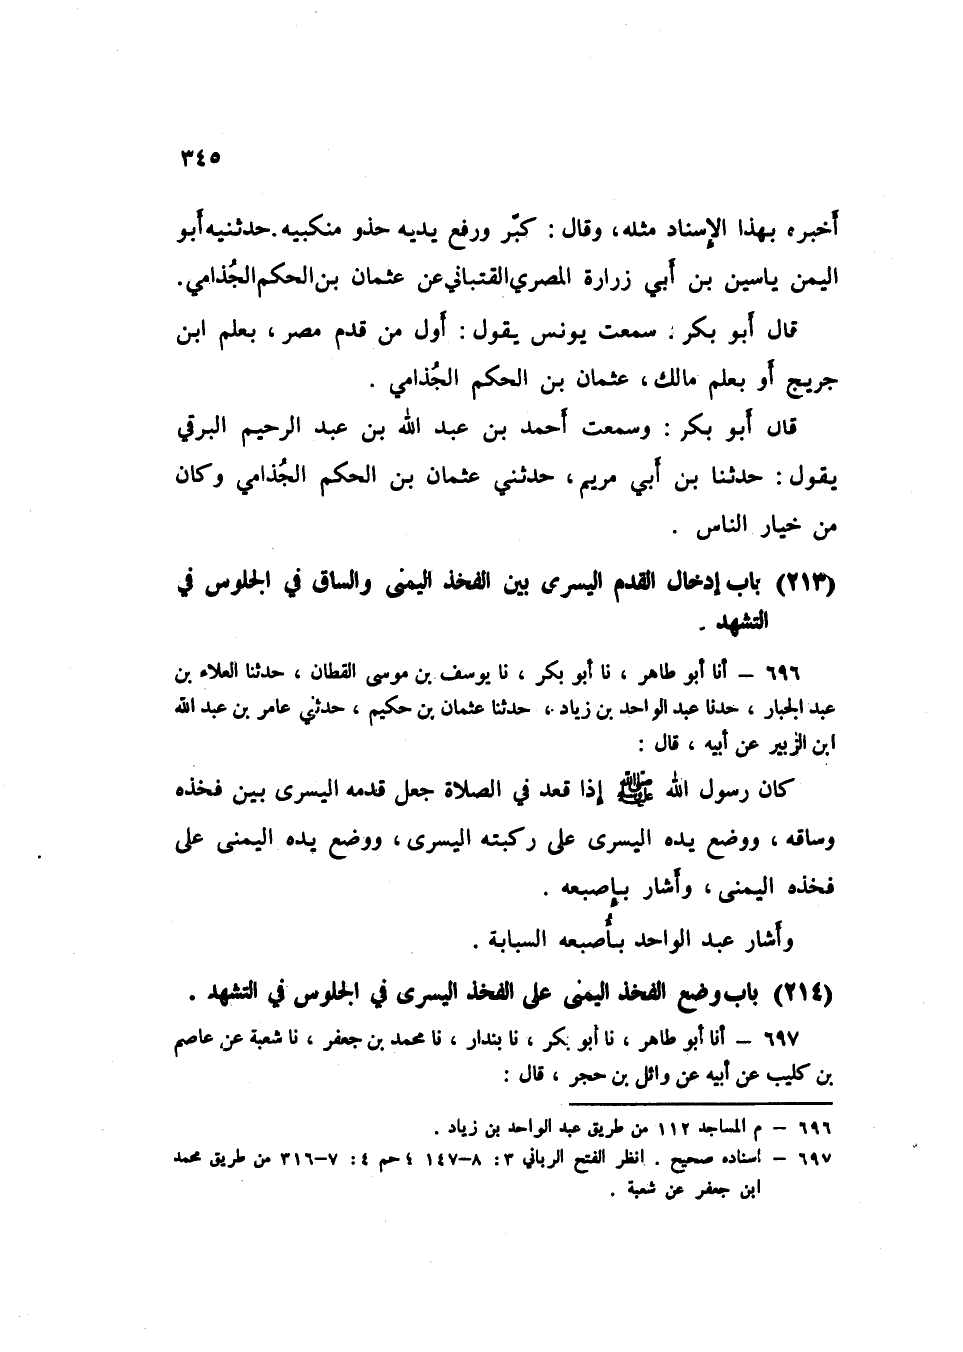 ٣٤٥
أخبره بهذا الإسناد مثله، وقال : كبّر ورفع يديه حذو منكبيه. حدثنيه أبو
اليمن ياسين بن أبي زرارة المصري القتباني عن عثمان بن الحكم الجُذامي.
قال أبو بكر : سمعت يونس يقول : أول من قدم مصر ، بعلم ابن
جريج أو بعلم مالك، عثمان بن الحكم الجُذامي .
قال أبو بكر : وسمعت أحمد بن عبد الله بن عبد الرحيم البرقي
يقول : حدثنا بن أبي مريم، حدثني عثمان بن الحكم الجُذامي وكان
من خيار الناس .
(٢١٣) باب إدخال القدم اليسرى بين الفخذ اليمنى والساق في الجلوس في
التشهد .
٦٩٦ – أنا أبو طاهر ، نا أبو بكر ، نا يوسف بن موسى القطان ، حدثنا العلاء بن
عبد الجبار ، حدنا عبد الواحد بن زياد ، حدثنا عثمان بن حكيم ، حدثني عامر بن عبد الله
ابن الزبير عن أبيه ، قال :
كان رسول الله ﷺ إذا قعد في الصلاة جعل قدمه اليسرى بين فخذه
وساقه ، ووضع يده اليسرى على ركبته اليسرى، ووضع يده اليمنى على
فخذه اليمنى ، وأشار بإصبعه .
وأشار عبد الواحد بأُصبعه السبابة .
(٢١٤) باب وضع الفخذ اليمنى على الفخذ اليسرى في الجلوس في التشهد .
٦٩٧ – أنا أبو طاهر ، نا أبو بكر ، نا بندار ، نا محمد بن جعفر ، نا شعبة عن عاصم
بن كليب عن أبيه عن وائل بن حجر ، قال :
٦٩٦ – م المساجد ١١٢ من طريق عبد الواحد بن زياد .
٦٩٧ – اسناده صحيح . انظر الفتح الرباني ٣ : ٨–١٤٧ ؛ حم ٤ : ٧–٣١٦ من طريق محمد
ابن جعفر عن شعبة .